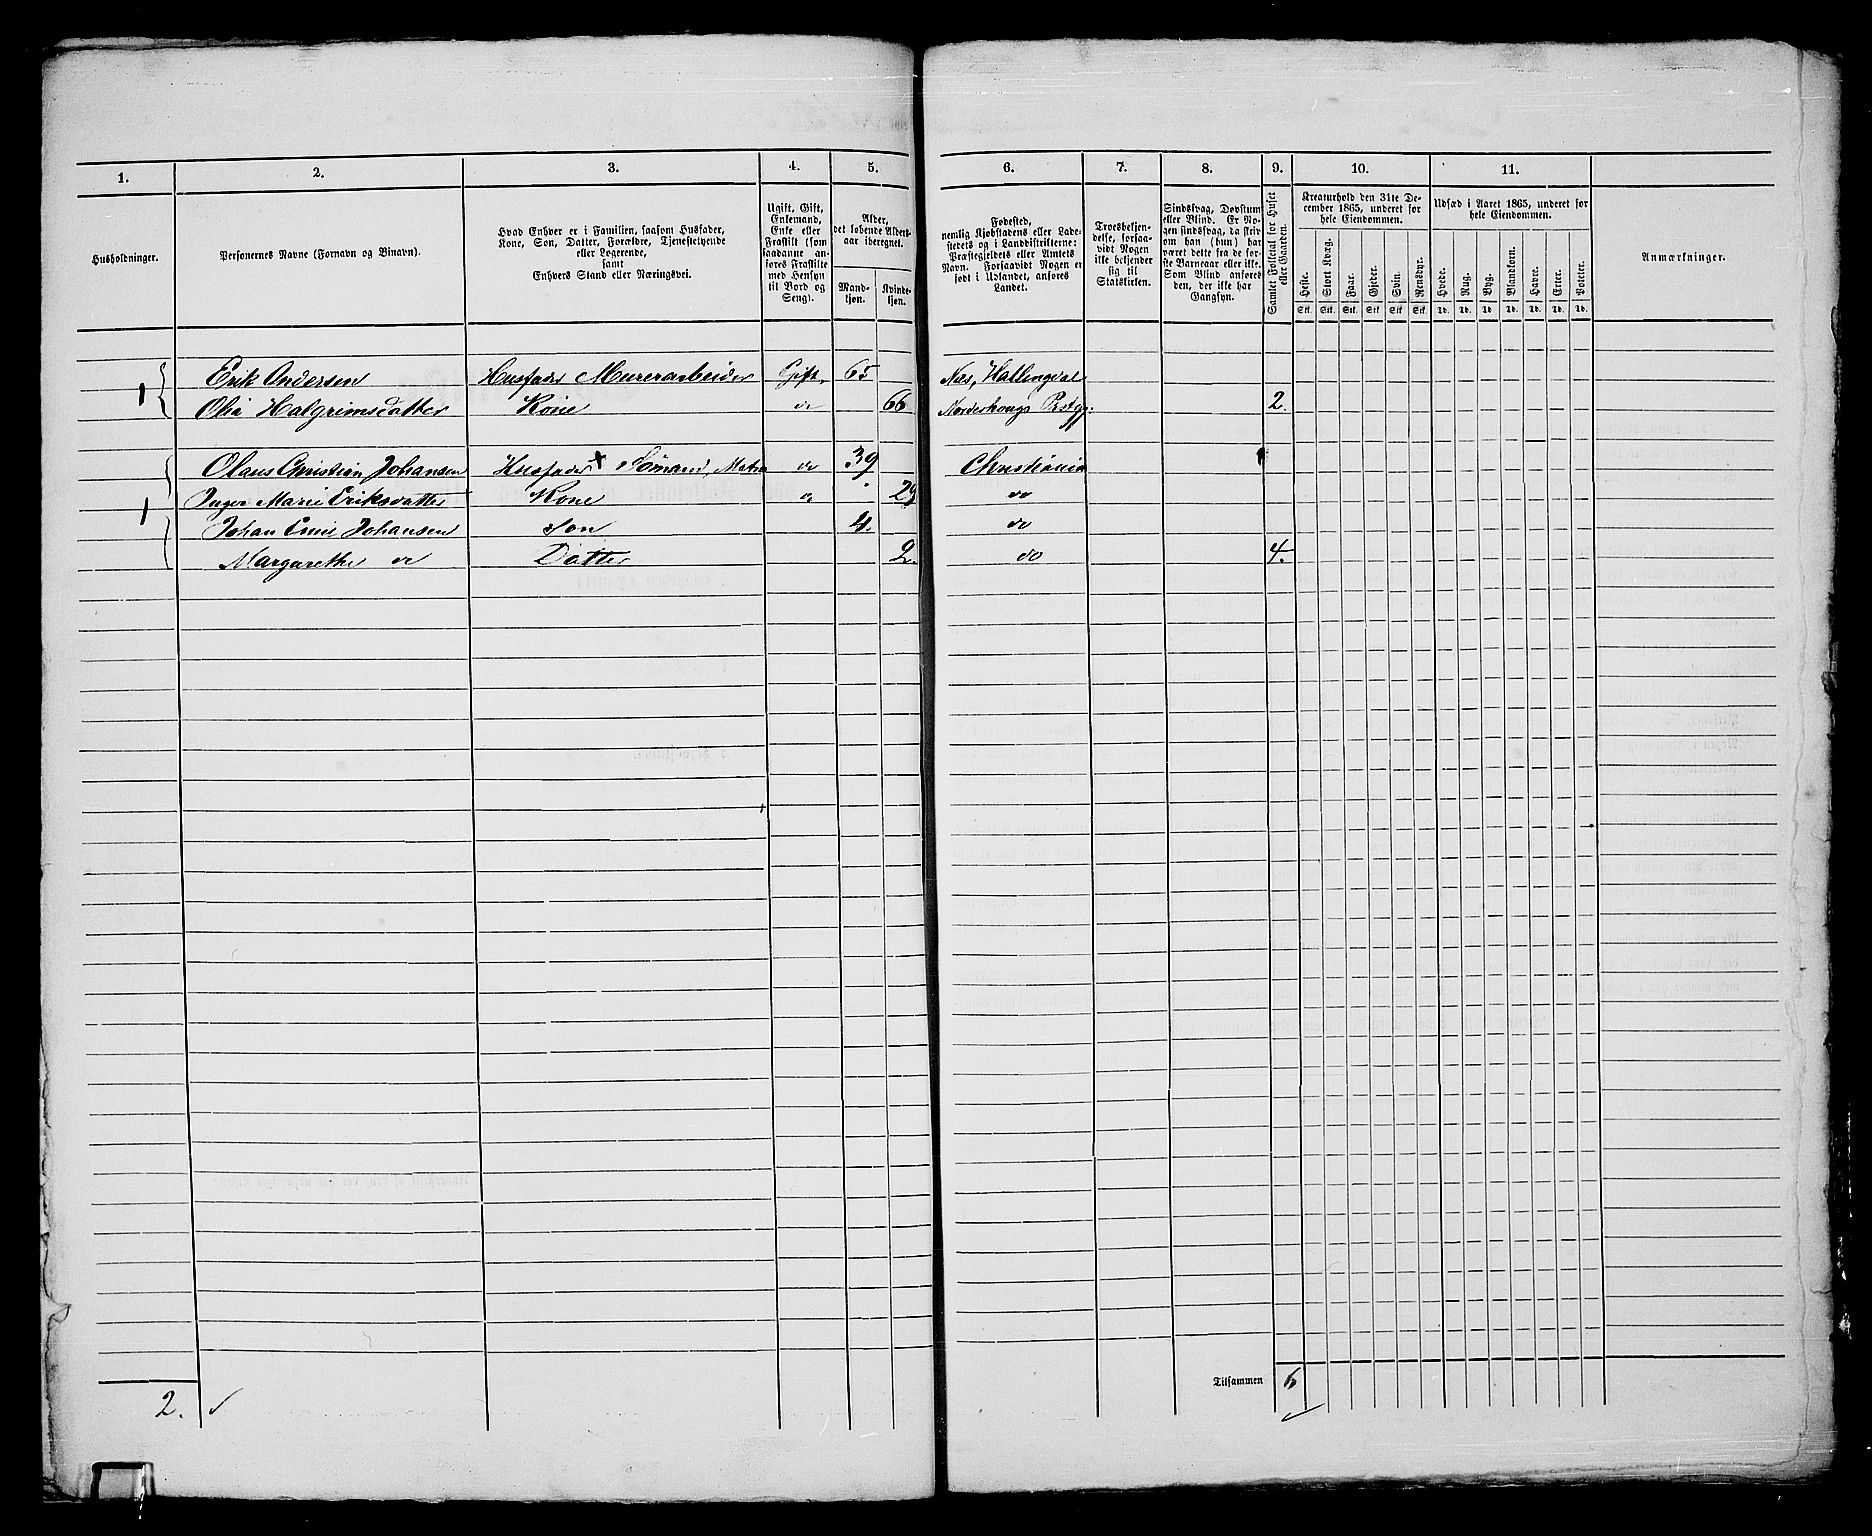 1. 2. 3. 4. 5. 6. 7. 8. 9. 10. 11.
Husholdninger.
Personernes Navne (Fornavn og Binavn).
Hvad Enhver er i Familien, saasom Husfader,
Kone, Søn, Datter, Forældre, Tjenestetyende
eller Logerende,
samt
Enhvers Stand eller Næringsvei.
Ugift, Gift,
Enkemand,
Enke eller
Fraskilt (som
saadanne an-
føres Fraskilte
med Hensyn
til Bord og
Seng).
Alder,
det løbende Alders-
aar iberegnet.
Mand-
kjøn.
Kvinde-
kjøn.
Fødested,
nemlig Kjøbstadens eller Lade-
stedets og i Landdistrikterne:
Præstegjeldets eller Amtets
Navn. Forsaavidt Nogen er
født i Udlandet, anføres
Landet.
Troesbekjen-
delse, forsaa-
vidt Nogen
ikke bekjender
sig til
Statskirken.
Sindssvag, Døvstum
eller Blind. Er No-
gen sindssvag, da skriv
om han (hun) har
været dette fra de før-
ste Barneaar eller ikke.
Som Blind anføres
den, der ikke har
Gangsyn.
Samlet Folketal for Huset
eller Gaarden.
Kreaturhold den 31te De-
cember 1865, underet for
hele Eiendommen.
Heste. Stort Kvæg. Faar. Gjeder. Svin. Rensdyr.
Stk. Stk. Stk. Stk. Stk. Stk.
Udsæd i Aaret 1865, underet for
hele Eiendommen.
Hvede. Rug. Byg. Blandkorn. Havre. Erter. Poteter.
Td. Td. Td. Td. Td. Td. Td.
Anmærkninger.
1 Erik Andersen Husfader Murerarbeider Gift. 65 Næs, Hallingdal
Olia Halgrimsdatter Kone do 66 Norderhougs Prstgj. 2.
1 Olaus Christian Johansen Husfader Sömand, do 39 Christiania
Inger Marie Eriksdatter Kone do 29 do
Johan Emil Johansen Son 4. do
Margarethe do Datter 2. do 4.
Tilsammen 6
2.